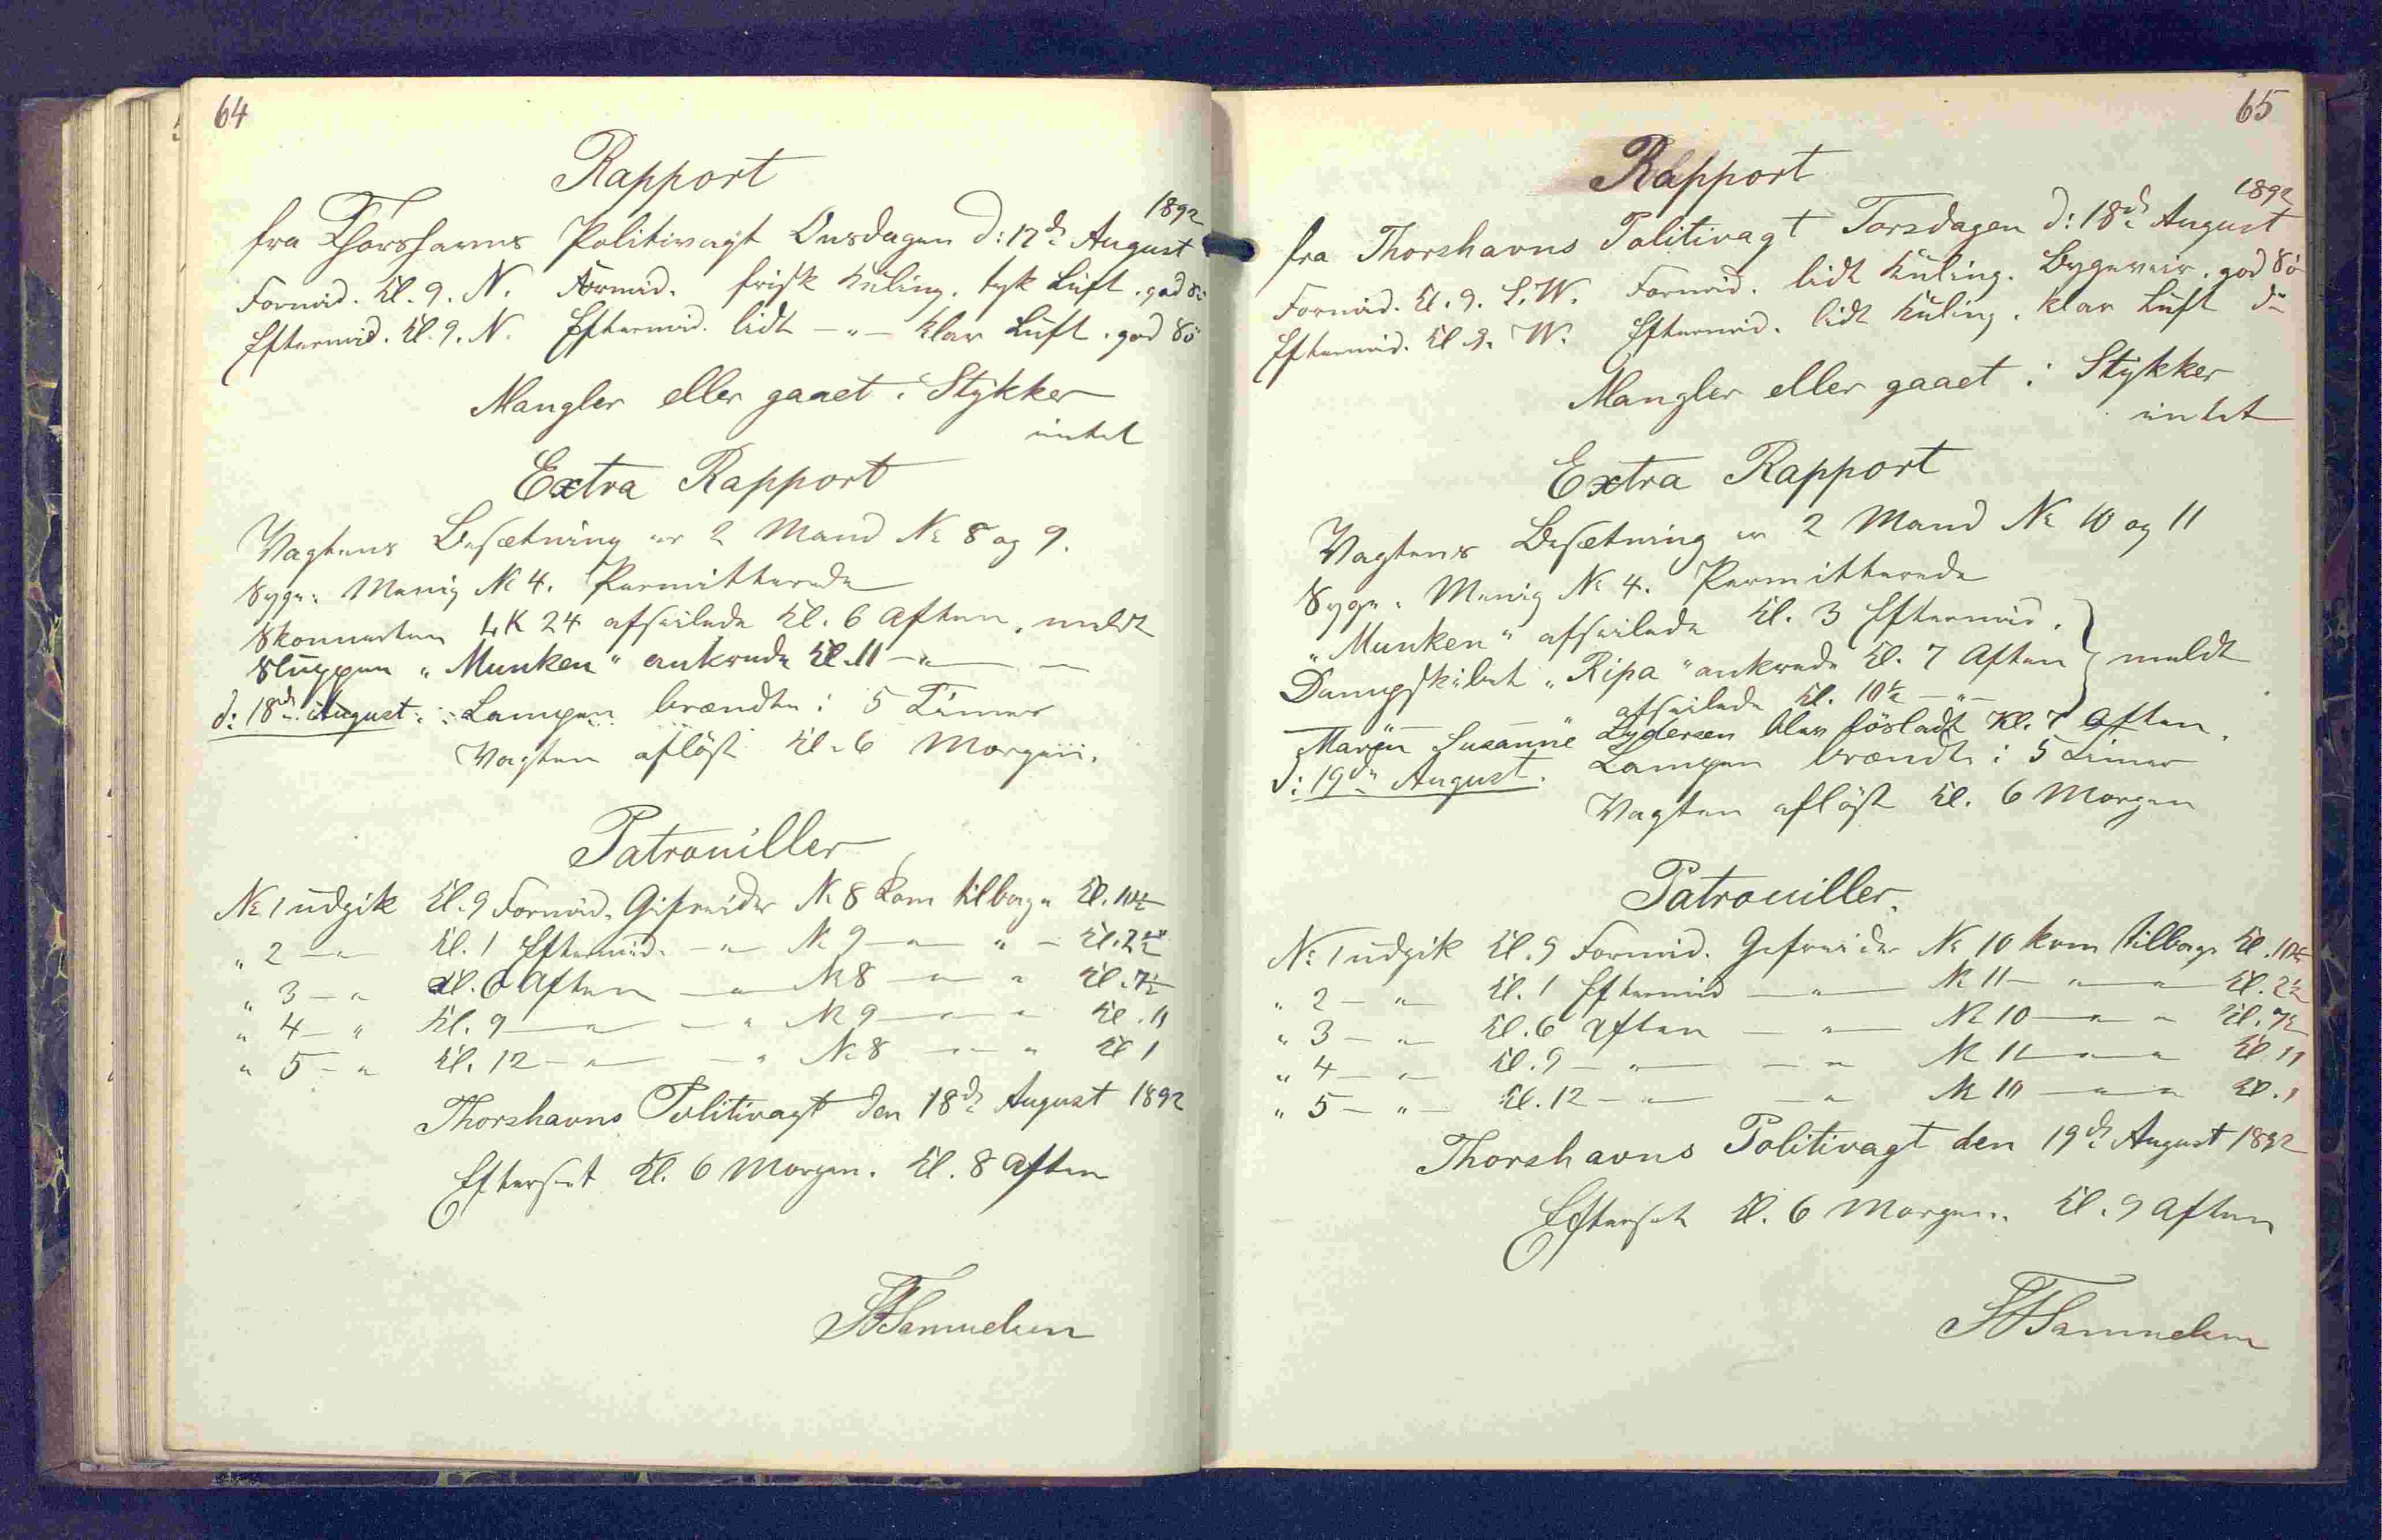 64
Rapport
1892
fra Thorshavns Politivagt Onsdagen d: 17de August
Formid. Kl. 9. N. Formid. frisk Kuling. tyk Luft. god Sö
Eftermid. Kl. 9. N. Eftermid. lidt — " — klar Luft. god Sö
Mangler eller gaaet i Stykker
intet
Extra Rapport
Vagtens Besætning er 2 Mand No 8 og 9.
Syge: Menig No 4. Permitterede
Skonnerten LK 24 afseilede Kl. 6 Aften. meldt
Sluppen "Munken" ankrede Kl. 11 — " — —
d: 18de August. Lampen brændte i 5 Timer
Vagten aflöst Kl. 6 Morgen.
Patrouiller
No 1 udgik Kl. 9 Formid. Gefreider No 8 kom tilbage Kl. 10½
" 2 — " Kl. 1 Eftermid. — " — No 9 — " — " — Kl. 2½
" 3 — " Kl. 6 Aften — " — No 8 — " — " Kl. 7½
" 4 — " Kl. 9 — " — — " No 9 — " — " Kl. 11
" 5 — " Kl. 12 — " — — " No 8 — " — " Kl 1
Thorshavns Politivagt den 18de August 1892
Efterset Kl. 6 Morgen. Kl. 8 Aften
Samuelsen
65
Rapport
1892
fra Thorshavns Politivagt Torsdagen d: 18de August
Formid. Kl. 9. S.W. Formid. lidt Kuling. Bygeveir. god Sö
Eftermid. Kl 9. W. Eftermid. lidt Kuling. klar Luft do
Mangler eller gaaet i Stykker
intet
Extra Rapport
Vagtens Besætning er 2 Mand No 10 og 11
Syge: Menig No 4. Permitterede
"Munken" afseilede Kl. 3 Eftermid.
Dampskibet "Ripa" ankrede Kl. 7 Aften } meldt
afseilede Kl. 10½ — " —
Maren Susanne Lydersen blev lösladt Kl. 7 Aften.
d: 19de August. Lampen brændte i 5 Timer
Vagten aflöst Kl. 6 Morgen
Patrouiller.
No 1 udgik Kl. 9 Formid. Gefreider No 10 kom tilbage Kl. 10½
" 2 — " — Kl. 1 Eftermid — " — No 11 — " — " — Kl. 2½
" 3 — " — Kl. 6 Aften — " — No 10 — " — " Kl. 7½
" 4 — " — Kl. 9 — " — — " No 11 — " — " Kl 11
" 5 — " — Kl. 12 — " — — " No 10 — " — " Kl. 1
Thorshavns Politivagt den 19de August 1892
Efterset Kl. 6 Morgen. Kl. 9 Aften
Samuelsen